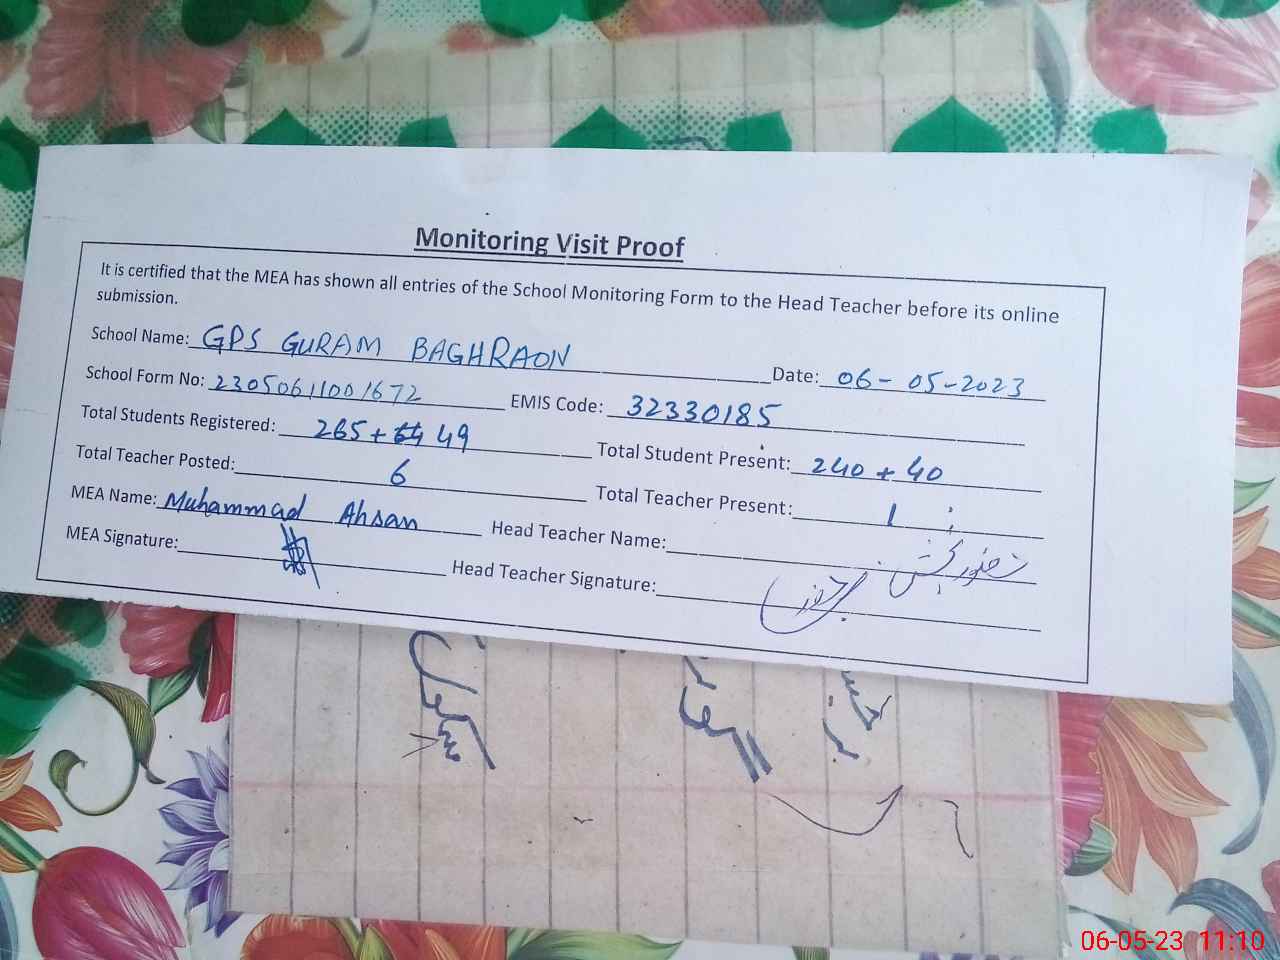 Monitoring Visit Proof
It is certified that the MEA has shown all entries of the School Monitoring Form to the Head Teacher before its online
submission.
School Name: GPS GURAM BAGHRAON Date: 06-05-2023
School Form No: 23050611001672 EMIS Code: 32330185
Total Students Registered: 265 + 49 Total Student Present: 240 + 40
Total Teacher Posted: 6 Total Teacher Present: 1
MEA Name: Muhammad Ahsan Head Teacher Name:
MEA Signature: Head Teacher Signature:
06-05-23 11:10